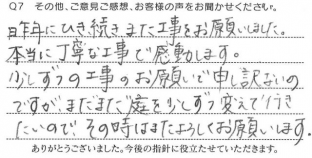 Q7 その他、ご意見ご感想、お客様の声をお聞かせください。
昨年にひき続きまた工事をお願いしました。
本当に丁寧な工事で感動します。
少しずつの工事のお願いで申し訳ないの
ですがまだまだ庭を少しずつ変えて行き
たいので、その時はまたよろしくお願いします。
ありがとうございました。今後の指針に役立たせていただきます。